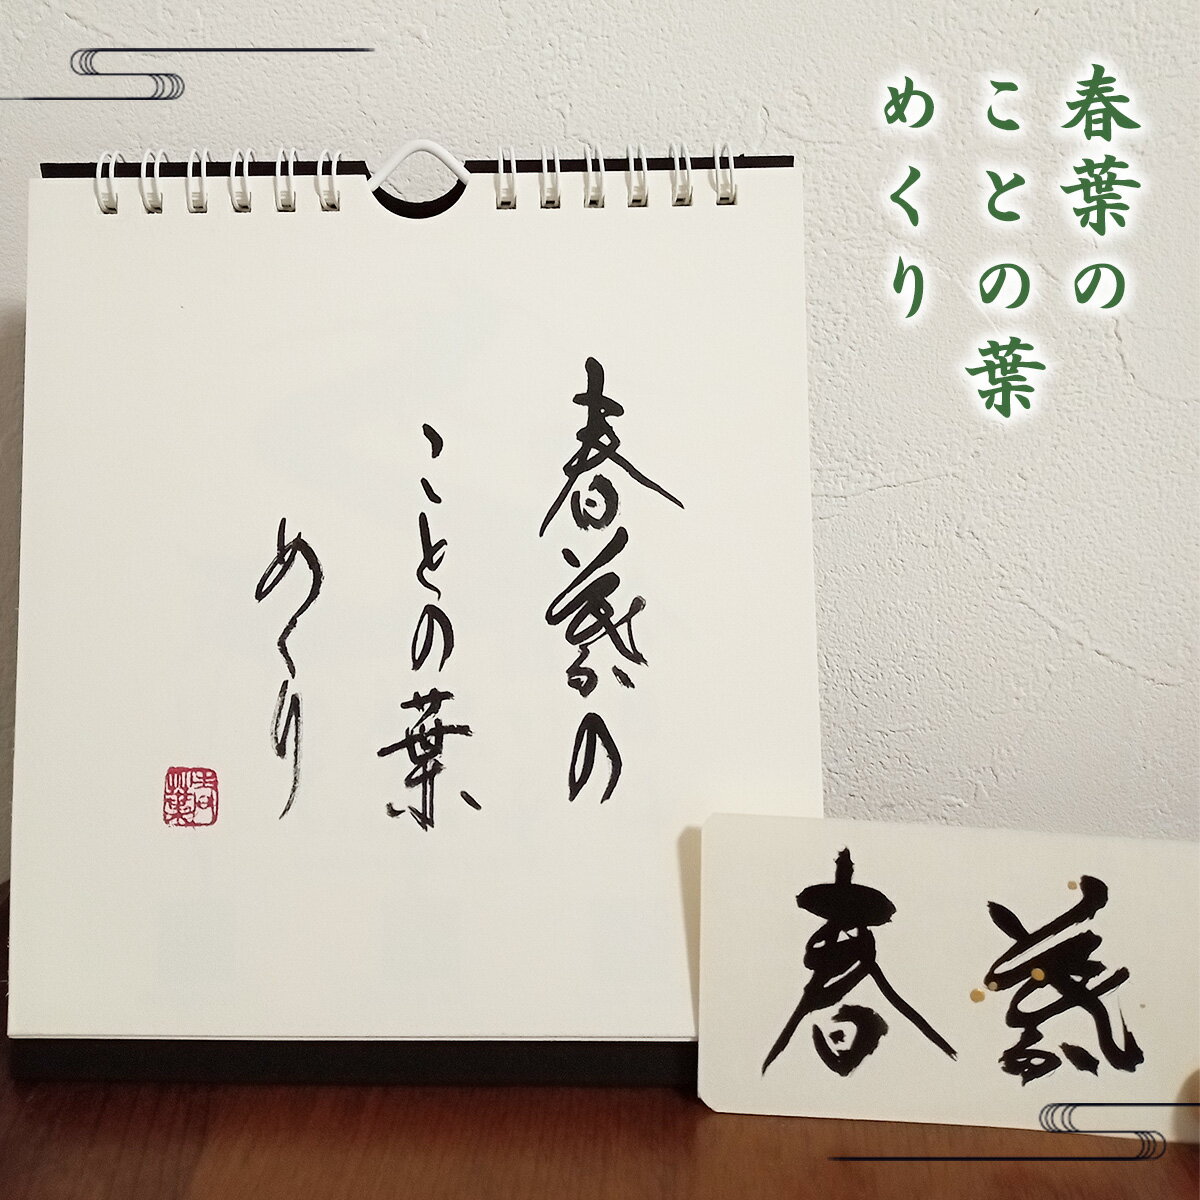 春葉の
ことの葉
めくり
春葉の
ことの葉
めくり
春葉
春葉